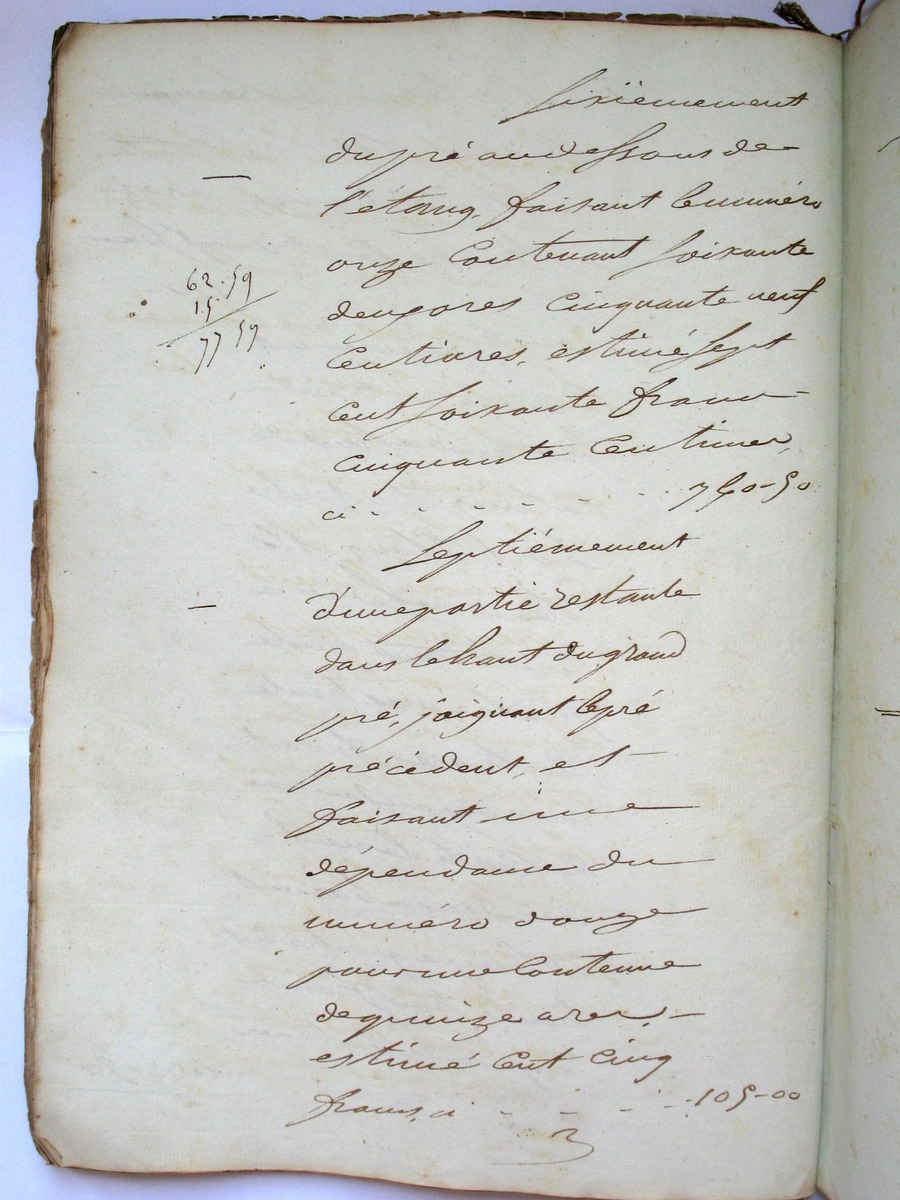 Sixiemement
du pré au dessous de
l'etang, faisant le numéro
onze Contenant Soixante
deux ares Cinquante neuf
Centiares, estimé Sept
Cent Soixante francs
Cinquante Centimes,
ci - - - - - - 760-50
62.59
15
77 59
Septiémement
d'une partie restante
dans le haut du grand
pré, joignant le pré
précédent, et
faisant une
dépendance du
numéro douze
pour une Contenue
de quinze ares, -
estimé Cent Cinq
francs, ci - - - - - 105-00